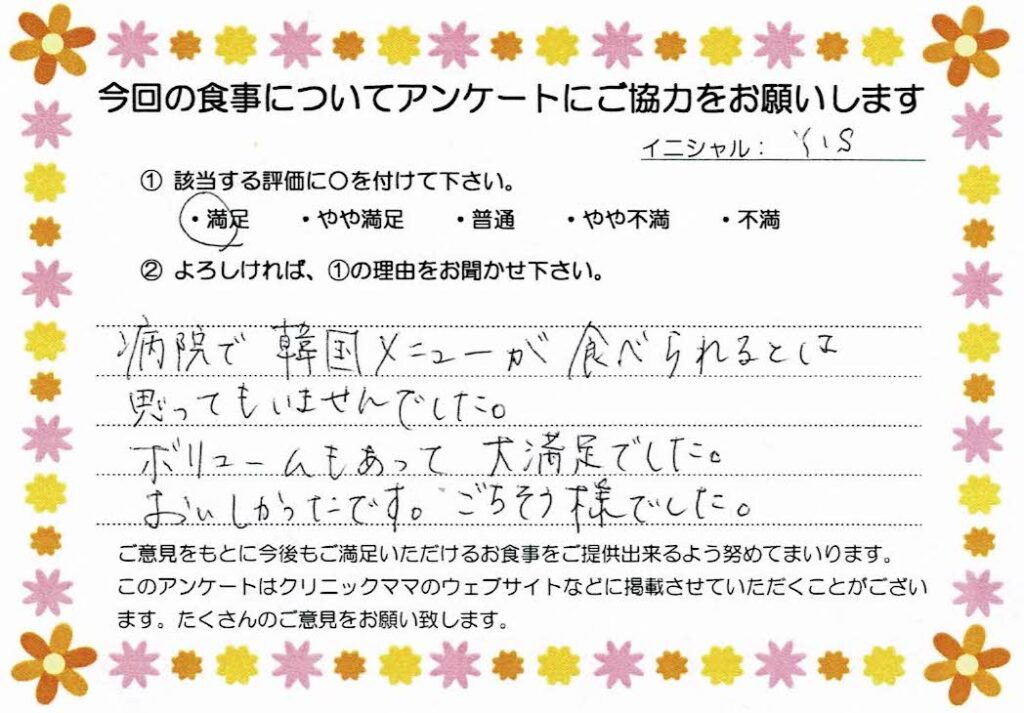 今回の食事についてアンケートにご協力をお願いします
イニシャル：
① 該当する評価に〇を付けて下さい。
・満足 ・やや満足 ・普通 ・やや不満 ・不満
② よろしければ、①の理由をお聞かせ下さい。
病院で韓国メニューが食べられるとは
思ってもいませんでした。
ボリュームもあって大満足でした。
おいしかったです。ごちそう様でした。
ご意見をもとに今後もご満足いただけるお食事をご提供出来るよう努めてまいります。
このアンケートはクリニックママのウェブサイトなどに掲載させていただくことがござい
ます。たくさんのご意見をお願い致します。